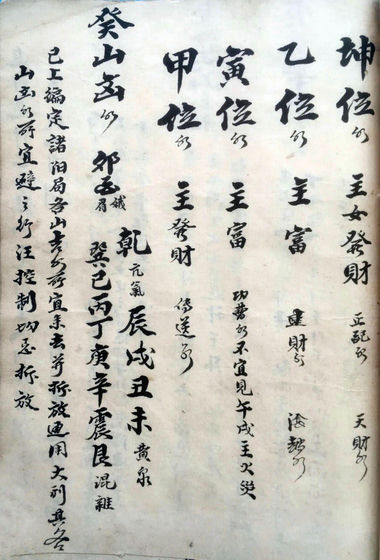 坤位水 主女發財 正配水 天財水
乙位水 主富 進財水
寅位水 主富 功曹水不宜見午戌主火災
甲位水 主發財 傳送水
癸山凶水 卯 乾元氣 辰戌丑未黄泉
巽巳丙丁庚辛震艮混雜
已上編定諸陷局各山吉水所宜來去并拆放通用大利其各
山凶水所宜避之行汪控制切忌拆放